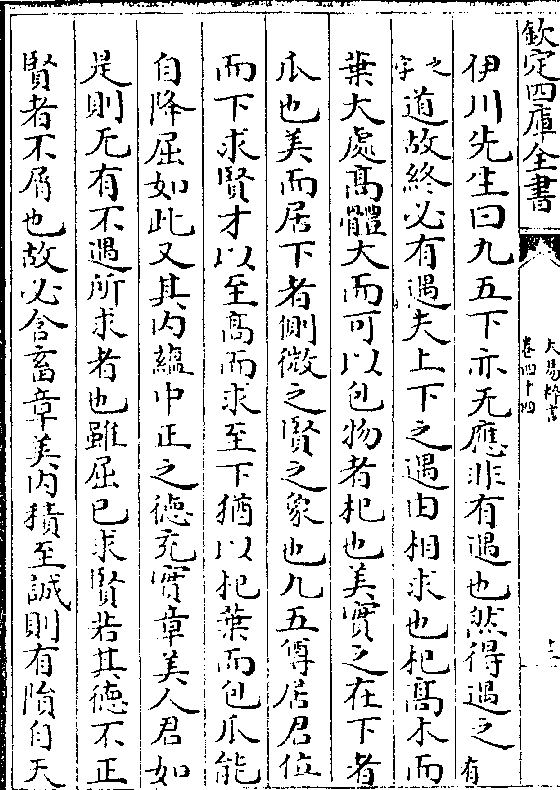 欽定四庫全書
大易粹言
卷四十四
伊川先生曰九五下亦无應非有遇也然得遇之有
之字道故終必有遇夫上下之遇由相求也杞髙木而
葉大處髙體大而可以包物者杞也美實之在下者
瓜也美而居下者側微之賢之象也九五尊居君位
而下求賢才以至髙而求至下猶以杞葉而包瓜能
自降屈如此又其内藴中正之徳充實章美人君如
是則无有不遇所求者也雖屈已求賢若其徳不正
賢者不屑也故必含畜章美内積至誠則有隕自天